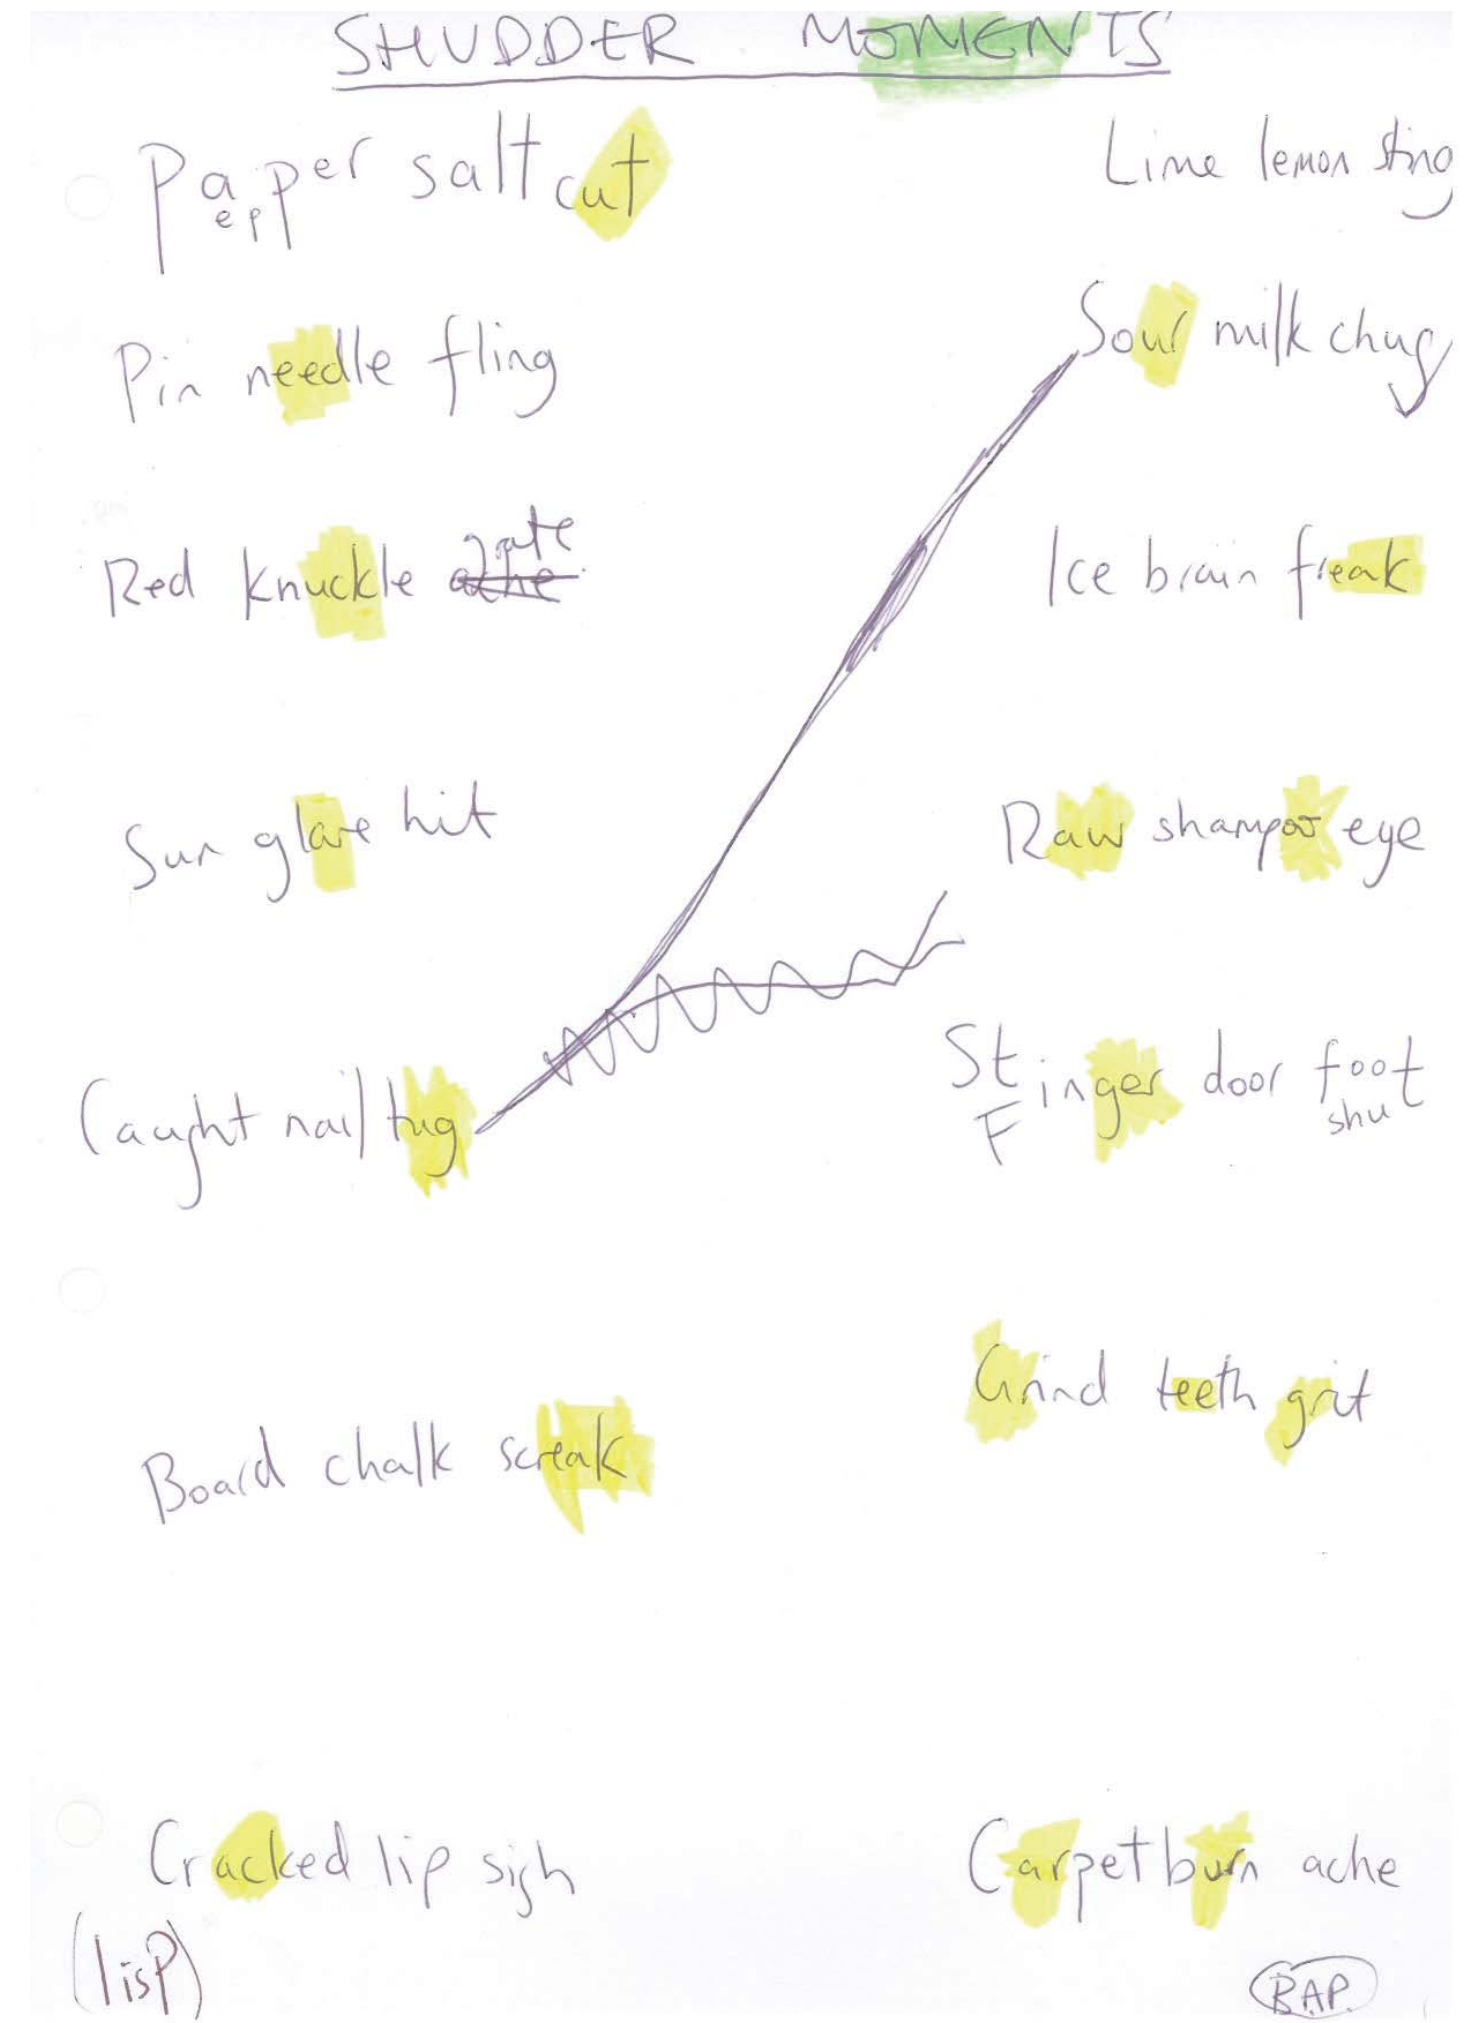 SHUDDER MOMENTS
Paper salt cut
ep
Pin needle fling
Red knuckle ache grate
Sun glare hit
Caught nail tug
Board chalk screak
Cracked lip sigh
(lisp)
Lime lemon sting
Sour milk chug
Ice brain freak
Raw shampoo eye
Stinger door foot
F shut
Grind teeth grit
Carpet burn ache
BAP.